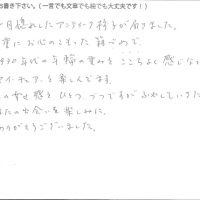 お書き下さい。（一言でも文章でも絵でも大丈夫です！）
一目惚れしたアンティーク椅子が届きました。
重に お心のこもった 箱づめで、
1930年代の年輪の重みを ここちよく 感じな
アイ・ティアイムを楽しんでます。
の幸せ感を ひとつづつですが ふやしていきた
なたの出会いを楽しみに。
ありがとうございました。